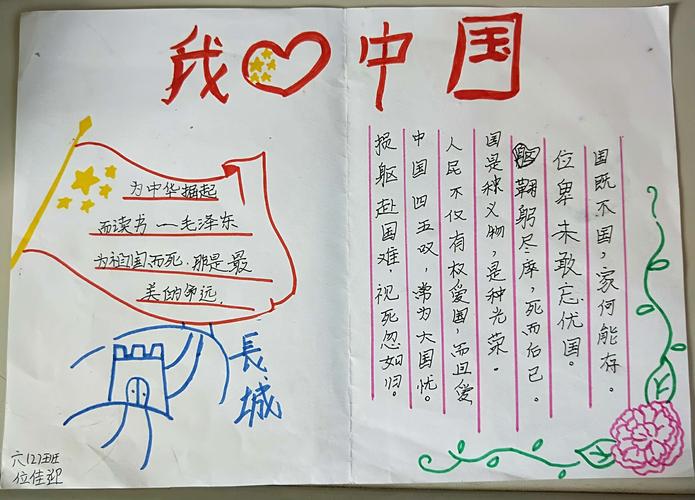 我中国
为中华掘起
而读书—毛泽东
为祖国而死,那是最
美的命远。
長城
六(2)班
位佳迎
国既不国,家何能存。
位卑未敢忘优国。
鞠躬尽瘁,死而后已。
国是种义物,是种光荣。
人民不仅有权爱国,而且爱
中国四五叹,常为大国忧。
损躯赴国难,视死忽如归。